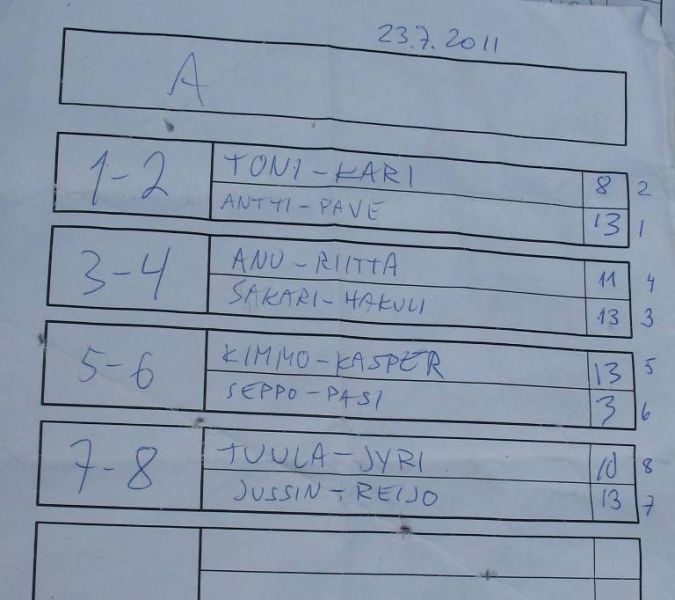 23.7.2011
A
1-2
TONI-KARI 8 2
ANTTI-PAVE 13 1
3-4
ANU-RIITTA 11 4
SAKARI-HAKULI 13 3
5-6
KIMMO-KASPER 13 5
SEPPO-PASI 3 6
7-8
TUULA-JYRI 10 8
JUSSIN-REIJO 13 7